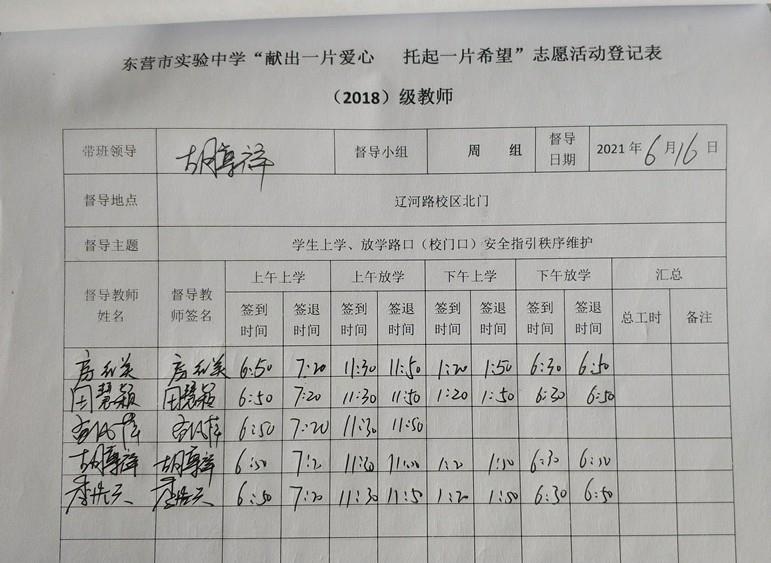 东营市实验中学“献出一片爱心 托起一片希望”志愿活动登记表
（2018）级教师
带班领导 胡享祥 督导小组 周 组 督导日期 2021年6月16日
督导地点 辽河路校区北门
督导主题 学生上学、放学路口（校门口）安全指引秩序维护
督导教师姓名 督导教师签名 上午上学 上午放学 下午上学 下午放学 汇总
签到时间 签退时间 签到时间 签退时间 签到时间 签退时间 签到时间 签退时间 总工时 备注
6:50 7:20 11:30 11:50 1:20 1:50 6:30 6:50
田慧颖 田慧颖 6:50 7:20 11:30 11:50 1:20 1:50 6:30 6:50
6:50 7:20 11:30 11:50
胡享祥 胡享祥 6:50 7:20 11:30 11:50 1:20 1:50 6:30 6:50
李浩天 李浩天 6:50 7:20 11:30 11:50 1:20 1:50 6:30 6:50